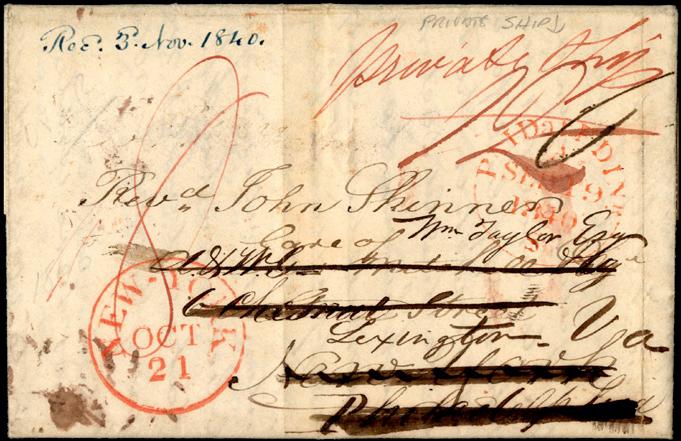 PRIVATE SHIP
Rec. 3. Nov. 1840.
private ship
PAID
1840
Revd. John Skinner
Care of Wm Taylor Esq
6 Chesnut Street
Lexington - Va
New York
Philadelphia
NEW-YORK
OCT
21